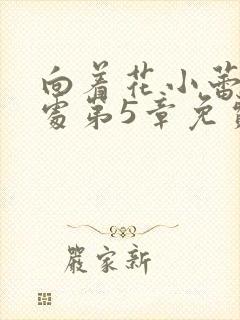 向着花小蕾
处第5章免费
严家新